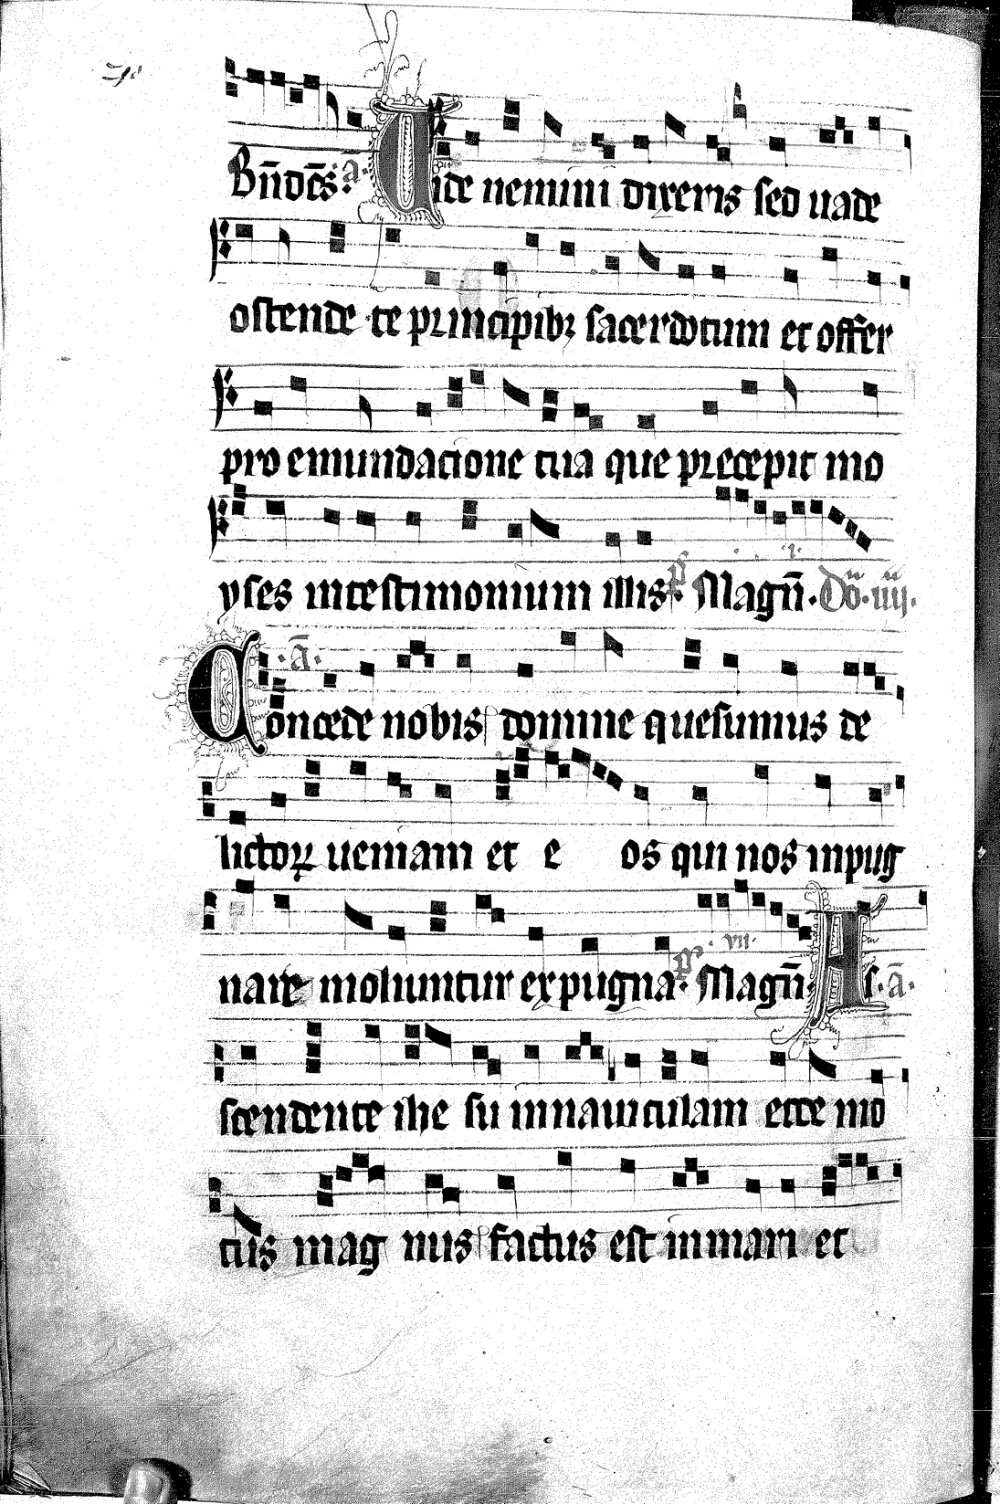 Bn̄dc̄s. a. Vide nemini dixeris sed uade
ostende te principibꝫ sacerdotum et offer
pro emundatione tua que precepit mo
yses in testimonium illis. ps̄ Magn̄. Dō. iiij.
Concede nobis domine quesumus de ā.
lictoꝝ ueniam et e os qui nos inpug
nare moliuntur expugna. ps̄ vii. Magn̄. As. ā.
scendente ihe su in nauiculam ecce mo
tus mag nus factus est in mari et